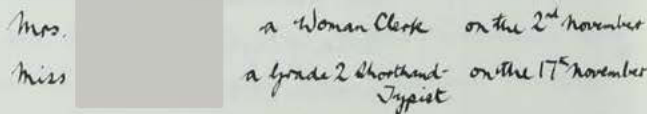 Mrs. a Woman Clerk on the 2nd November
Miss a Grade 2 Shorthand- on the 17th November
Typist